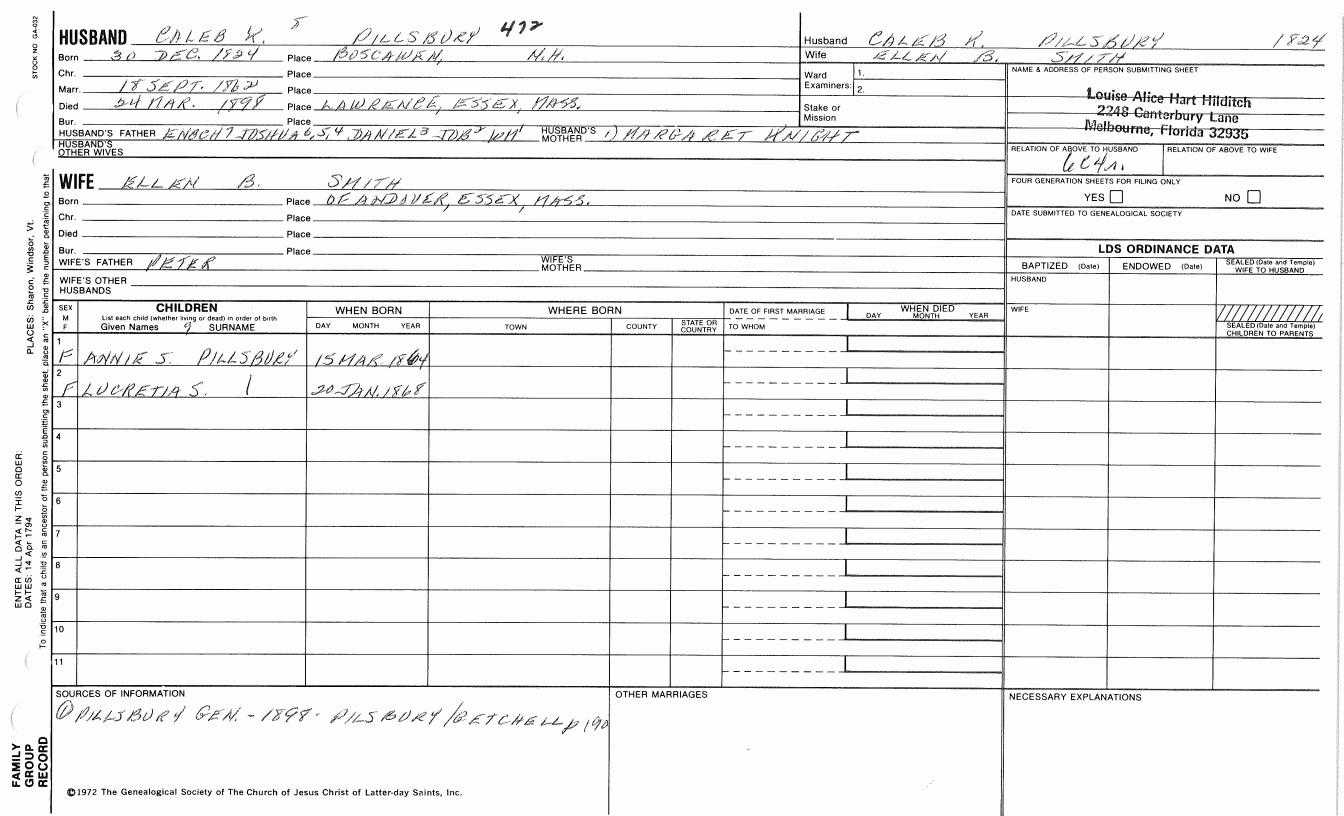 STOCK NO. GA-032
HUSBAND CALEB K. 8 PILLSBURY 472
Born 30 DEC. 1824 Place BOSCAWEN, N.H.
Chr. Place
Marr. 18 SEPT. 1862 Place
Died 24 MAR. 1898 Place LAWRENCE, ESSEX, MASS.
Bur. Place
HUSBAND'S FATHER ENOCH 7 JOSHUA 6,5,4 DANIEL 3 JOB 2 WM 1 HUSBAND'S MOTHER 1) MARGARET KNIGHT
HUSBAND'S OTHER WIVES
WIFE ELLEN B. SMITH
Born Place OF ANDOVER, ESSEX, MASS.
Chr. Place
Died Place
Bur. Place
WIFE'S FATHER PETER WIFE'S MOTHER
WIFE'S OTHER HUSBANDS
Husband CALEB K. PILLSBURY 1824
Wife ELLEN B. SMITH
Ward Examiners: 1. 2.
Stake or Mission
NAME & ADDRESS OF PERSON SUBMITTING SHEET
Louise Alice Hart Hilditch
2248 Canterbury Lane
Melbourne, Florida 32935
RELATION OF ABOVE TO HUSBAND RELATION OF ABOVE TO WIFE
6C4r.
FOUR GENERATION SHEETS FOR FILING ONLY
YES NO
DATE SUBMITTED TO GENEALOGICAL SOCIETY
LDS ORDINANCE DATA
BAPTIZED (Date) ENDOWED (Date) SEALED (Date and Temple) WIFE TO HUSBAND
HUSBAND
WIFE
SEALED (Date and Temple) CHILDREN TO PARENTS
SEX M F CHILDREN WHEN BORN WHERE BORN DATE OF FIRST MARRIAGE WHEN DIED
List each child (whether living or dead) in order of birth
Given Names SURNAME DAY MONTH YEAR TOWN COUNTY STATE OR COUNTRY TO WHOM DAY MONTH YEAR
1 F ANNIE S. PILLSBURY 15 MAR. 1864
2 F LUCRETIA S. 20 JAN. 1868
3
4
5
6
7
8
9
10
11
SOURCES OF INFORMATION OTHER MARRIAGES NECESSARY EXPLANATIONS
① PILLSBURY GEN. - 1898 - PILSBURY/GETCHELL p 190
©1972 The Genealogical Society of The Church of Jesus Christ of Latter-day Saints, Inc.
FAMILY
GROUP
RECORD
ENTER ALL DATA IN THIS ORDER:
DATES: 14 Apr 1794 PLACES: Sharon, Windsor, Vt.
To indicate that a child is an ancestor of the person submitting the sheet, place an "X" behind the number pertaining to that